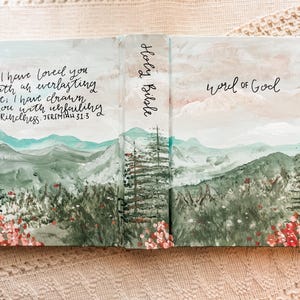 I have loved you
with an everlasting
love; I have drawn
you with unfailing
kindness. JEREMIAH 31:3
Holy Bible
word OF God